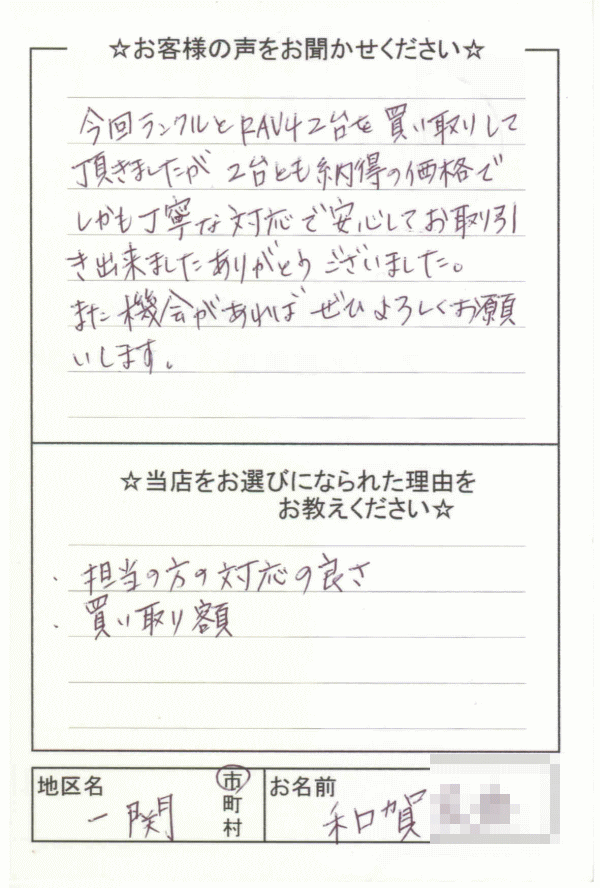 ☆お客様の声をお聞かせください☆
今回ランクルとRAV4 2台を買い取りして
頂きましたが 2台とも納得の価格で
しかも丁寧な対応で安心してお取り引
き出来ましたありがとうございました。
また機会があればぜひよろしくお願
いします。
☆当店をお選びになられた理由を
お教えください☆
・担当の方の対応の良さ
・買い取り額
地区名 一関 市
町
村
お名前 和賀